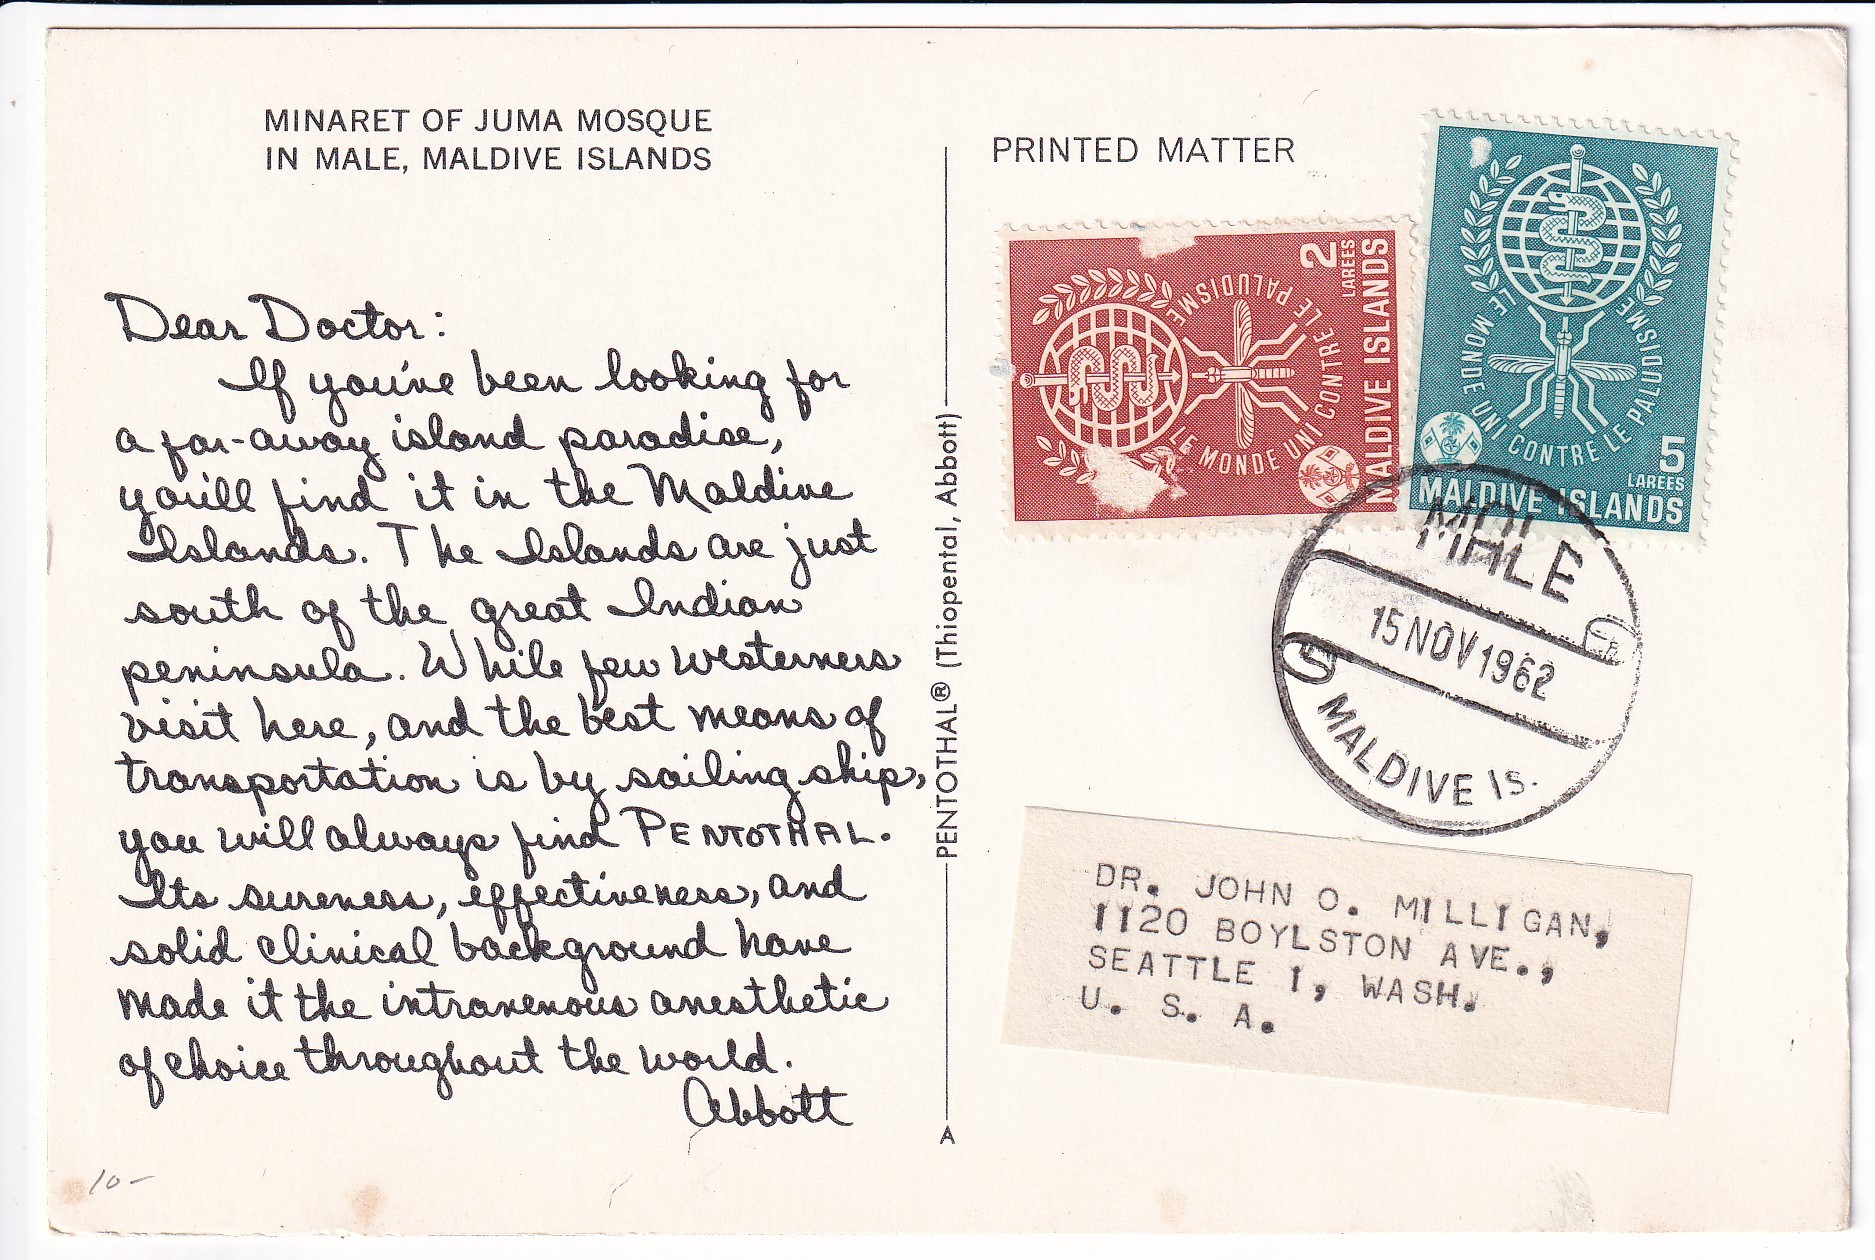 MINARET OF JUMA MOSQUE
IN MALE, MALDIVE ISLANDS
Dear Doctor:
If you've been looking for
a far-away island paradise,
you'll find it in the Maldive
Islands. The Islands are just
south of the great Indian
peninsula. While few westerners
visit here, and the best means of
transportation is by sailing ship,
you will always find PENTOTHAL.
Its sureness, effectiveness, and
solid clinical background have
made it the intravenous anesthetic
of choice throughout the world.
Abbott
10-
PENTOTHAL® (Thiopental, Abbott)
A
PRINTED MATTER
2
LAREES
MALDIVE ISLANDS
LE MONDE UNI CONTRE LE PALUDISME
LE MONDE UNI CONTRE LE PALUDISME
5
LAREES
MALDIVE ISLANDS
MALE
15 NOV 1962
MALDIVE IS.
DR. JOHN O. MILLIGAN,
1120 BOYLSTON AVE.,
SEATTLE 1, WASH.
U. S. A.